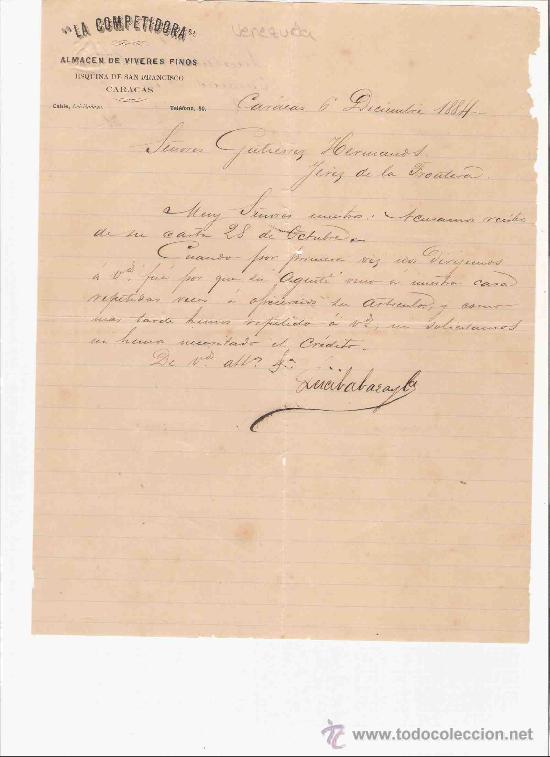 "LA COMPETIDORA"
Venezuela
ALMACEN DE VIVERES FINOS
ESQUINA DE SAN FRANCISCO
CARACAS
Cable, Teléfono, 50.
Carácas 6 Diciembre 1884
Señores Gutierrez Hermanos
Jerez de la Frontera.
Muy Señores nuestros: Acusamos recibo
de su carta 28 de Octubre.
Cuando por primera vez nos dirijimos
a Vds. fué por que su Agente vino a nuestra casa
repetidas veces a ofrecernos su Articulos, y como
mas tarde hemos repetido á Vds, ni solicitamos
ni hemos necesitado el Crédito.
De Vds. att°.
www.todocoleccion.net